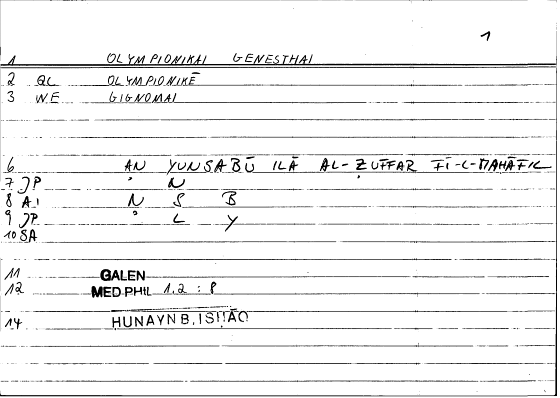 1
1 OLYMPIONIKAI GENESTHAI
2 QL OLYMPIONIKĒ
3 WE GIGNOMAI
6 AN YUNSABŪ ILĀ AL-ẒUFFAR FĪ-L-MAḤĀFIL
7 JP ʾ N
8 AI N S B
9 JP ʾ L Y
10 SA
11 GALEN
12 MED.PHIL 1,2 : 8
14 HUNAYN B. ISḤĀQ